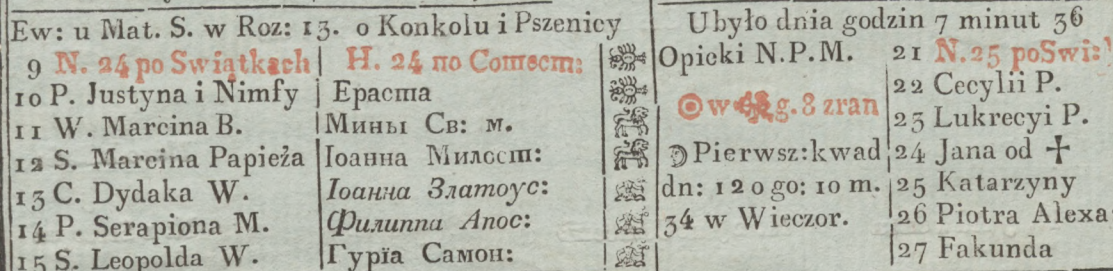 Ew: u Mat. S. w Roz: 13. o Konkolu i Pszenicy
9 N. 24 po Swiątkach
10 P. Justyna i Nimfy
11 W. Marcina B.
12 S. Marcina Papieża
13 C. Dydaka W.
14 P. Serapiona M.
15 S. Leopolda W.
Н. 24 по Сошест:
Ераста
Мины Св: м.
Іоанна Милост:
Іоанна Златоус:
Филиппа Апос:
Гурїа Самон:
Ubyło dnia godzin 7 minut 36
Opicki N.P.M.
w g. 8 zran
Pierwsz: kwad
dn: 12 o go: 10 m.
34 w Wieczor.
21 N. 25 po Swi:
22 Cecylii P.
23 Lukrecyi P.
24 Jana od ✝
25 Katarzyny
26 Piotra Alexa
27 Fakunda